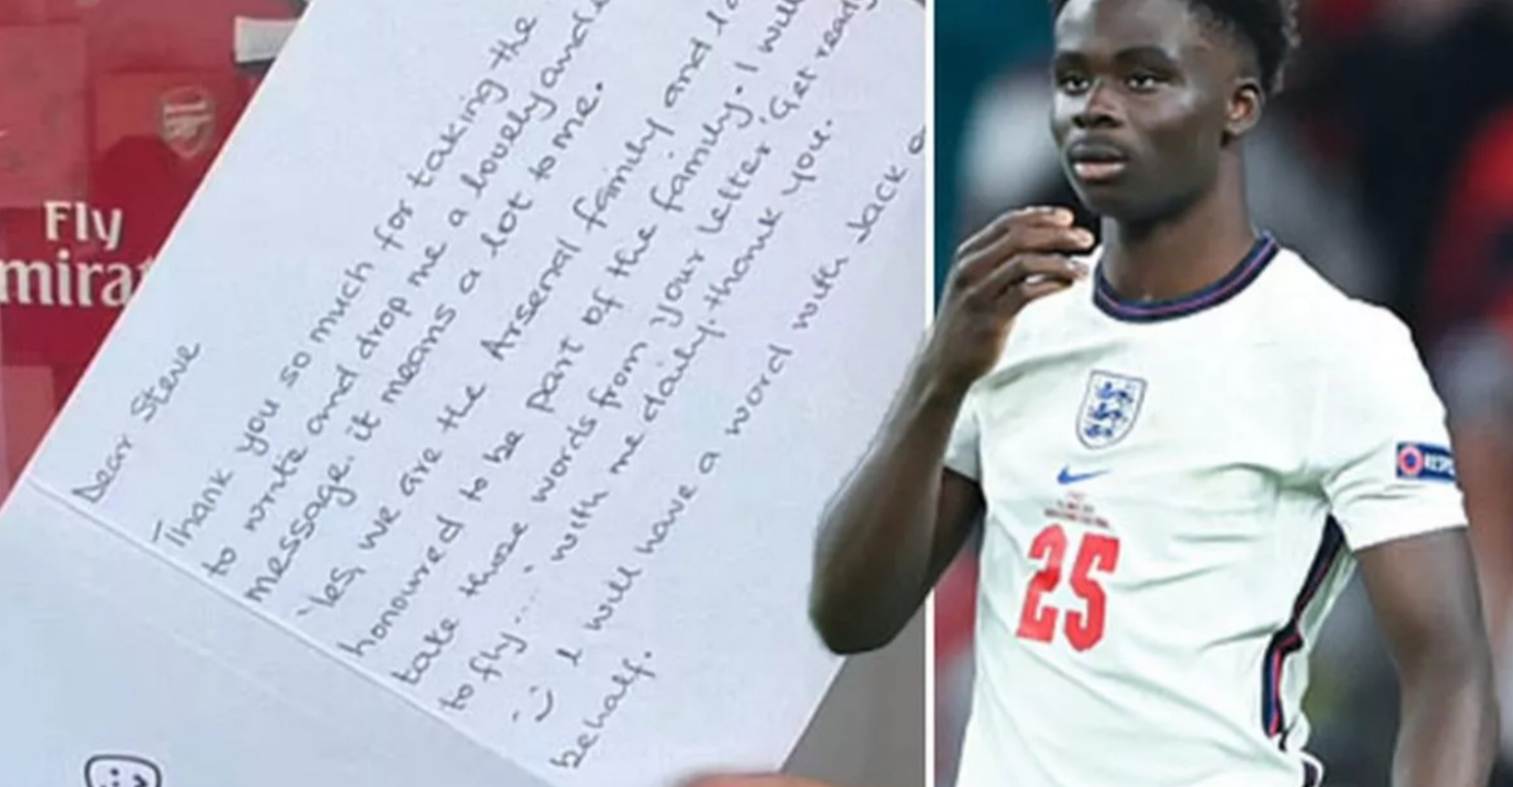 Fly
Dear Steve
Thank you so much for taking the
to write and drop me a lovely
message. it means a lot to me.
'Yes, we are the Arsenal family and
honoured to be part of the family. I will
take those words from your letter 'Get ready
to fly....' with me daily. thank you.
:) I will have a word with Jack
behalf.
25